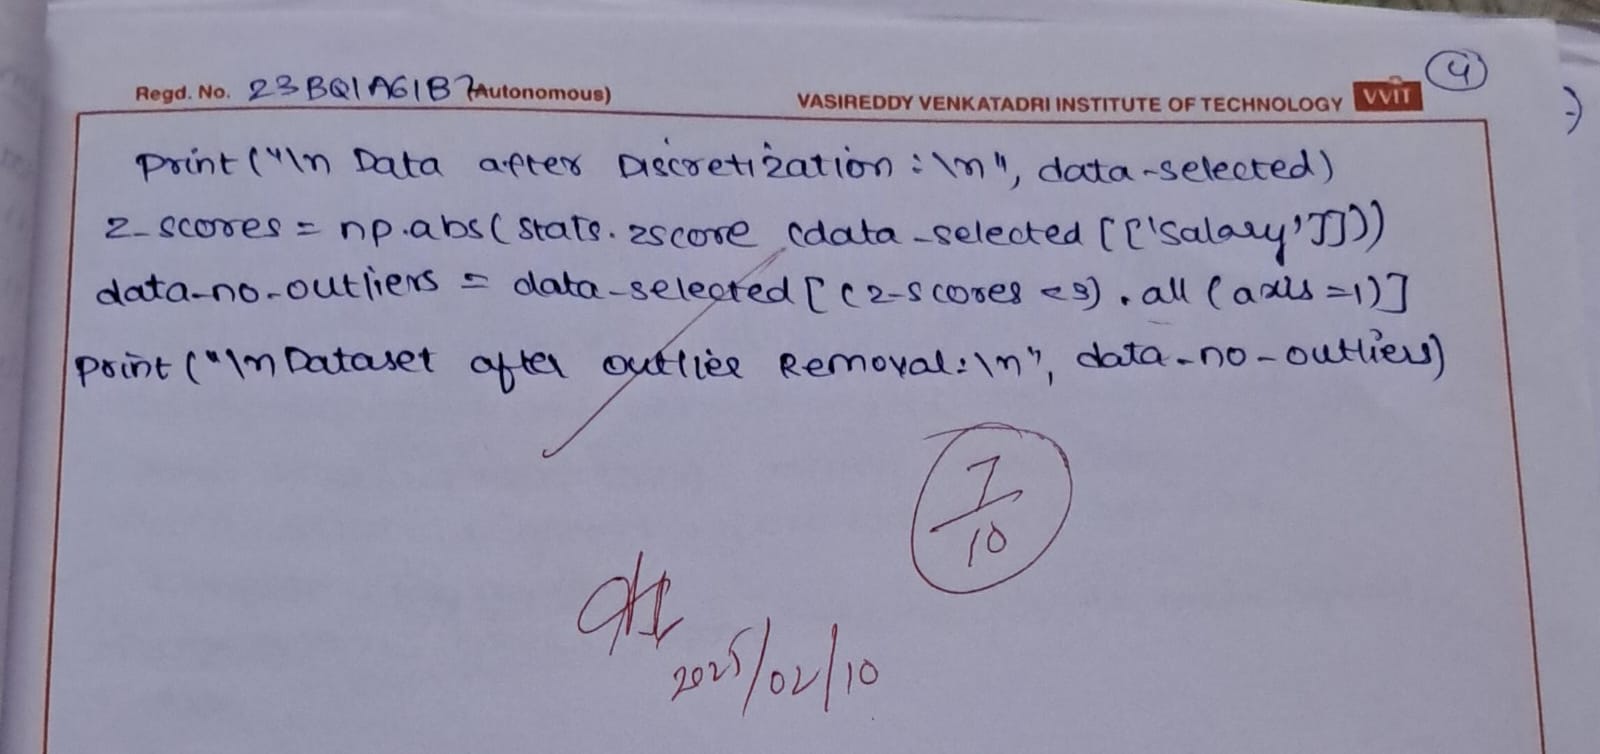 4
Regd. No. 23BQ1A61B7 (Autonomous)
VASIREDDY VENKATADRI INSTITUTE OF TECHNOLOGY VVIT
print("\n Data after Discretization:\n", data-selected)
z-scores = np.abs(stats.zscore (data-selected[['Salary']]))
data-no-outliers = data-selected[(z-scores <3).all(axis=1)]
print("\n Dataset after outlier Removal:\n", data-no-outliers)
7/10
2025/02/10